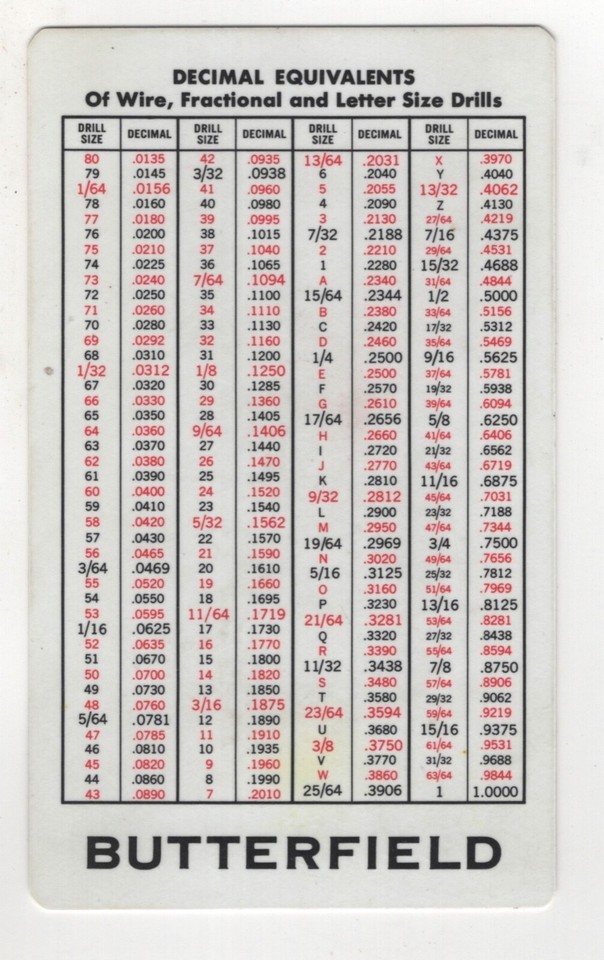 DECIMAL EQUIVALENTS
Of Wire, Fractional and Letter Size Drills
DRILL SIZE DECIMAL
80 .0135
79 .0145
1/64 .0156
78 .0160
77 .0180
76 .0200
75 .0210
74 .0225
73 .0240
72 .0250
71 .0260
70 .0280
69 .0292
68 .0310
1/32 .0312
67 .0320
66 .0330
65 .0350
64 .0360
63 .0370
62 .0380
61 .0390
60 .0400
59 .0410
58 .0420
57 .0430
56 .0465
3/64 .0469
55 .0520
54 .0550
53 .0595
1/16 .0625
52 .0635
51 .0670
50 .0700
49 .0730
48 .0760
5/64 .0781
47 .0785
46 .0810
45 .0820
44 .0860
43 .0890
DRILL SIZE DECIMAL
42 .0935
3/32 .0938
41 .0960
40 .0980
39 .0995
38 .1015
37 .1040
36 .1065
7/64 .1094
35 .1100
34 .1110
33 .1130
32 .1160
31 .1200
1/8 .1250
30 .1285
29 .1360
28 .1405
9/64 .1406
27 .1440
26 .1470
25 .1495
24 .1520
23 .1540
5/32 .1562
22 .1570
21 .1590
20 .1610
19 .1660
18 .1695
11/64 .1719
17 .1730
16 .1770
15 .1800
14 .1820
13 .1850
3/16 .1875
12 .1890
11 .1910
10 .1935
9 .1960
8 .1990
7 .2010
DRILL SIZE DECIMAL
13/64 .2031
6 .2040
5 .2055
4 .2090
3 .2130
7/32 .2188
2 .2210
1 .2280
A .2340
15/64 .2344
B .2380
C .2420
D .2460
1/4 .2500
E .2500
F .2570
G .2610
17/64 .2656
H .2660
I .2720
J .2770
K .2810
9/32 .2812
L .2900
M .2950
19/64 .2969
N .3020
5/16 .3125
O .3160
P .3230
21/64 .3281
Q .3320
R .3390
11/32 .3438
S .3480
T .3580
23/64 .3594
U .3680
3/8 .3750
V .3770
W .3860
25/64 .3906
DRILL SIZE DECIMAL
X .3970
Y .4040
13/32 .4062
Z .4130
27/64 .4219
7/16 .4375
29/64 .4531
15/32 .4688
31/64 .4844
1/2 .5000
33/64 .5156
17/32 .5312
35/64 .5469
9/16 .5625
37/64 .5781
19/32 .5938
39/64 .6094
5/8 .6250
41/64 .6406
21/32 .6562
43/64 .6719
11/16 .6875
45/64 .7031
23/32 .7188
47/64 .7344
3/4 .7500
49/64 .7656
25/32 .7812
51/64 .7969
13/16 .8125
53/64 .8281
27/32 .8438
55/64 .8594
7/8 .8750
57/64 .8906
29/32 .9062
59/64 .9219
15/16 .9375
61/64 .9531
31/32 .9688
63/64 .9844
1 1.0000
BUTTERFIELD